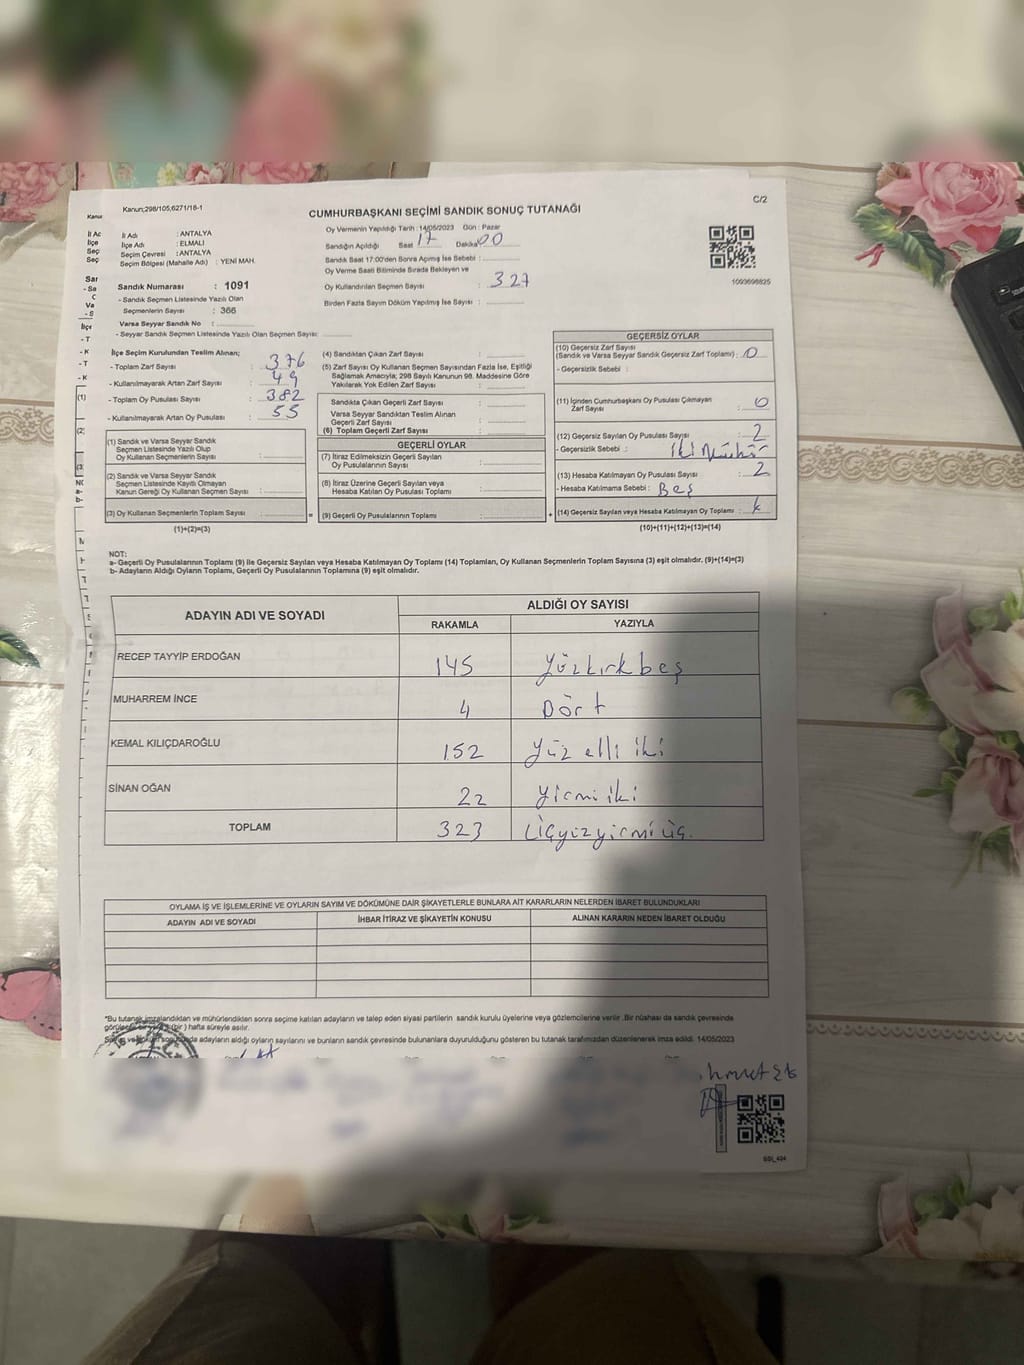 Kanun;298/105,6271/18-1
C/2
CUMHURBAŞKANI SEÇİMİ SANDIK SONUÇ TUTANAĞI
İl Adı : ANTALYA
İlçe Adı : ELMALI
Seçim Çevresi : ANTALYA
Seçim Bölgesi (Mahalle Adı) : YENİ MAH.
Sandık Numarası : 1091
- Sandık Seçmen Listesinde Yazılı Olan
Seçmenlerin Sayısı : 366
Varsa Seyyar Sandık No :
- Seyyar Sandık Seçmen Listesinde Yazılı Olan Seçmen Sayısı:
Oy Vermenin Yapıldığı Tarih : 14/05/2023 Gün : Pazar
Sandığın Açıldığı Saat 17 Dakika 00
Sandık Saat 17:00'den Sonra Açılmış İse Sebebi :
Oy Verme Saati Bitiminde Sırada Bekleyen ve
Oy Kullandırılan Seçmen Sayısı : 327
Birden Fazla Sayım Döküm Yapılmış İse Sayısı :
1093698825
İlçe Seçim Kurulundan Teslim Alınan;
- Toplam Zarf Sayısı : 376
- Kullanılmayarak Artan Zarf Sayısı : 49
- Toplam Oy Pusulası Sayısı : 382
- Kullanılmayarak Artan Oy Pusulası : 55
(1) Sandık ve Varsa Seyyar Sandık
Seçmen Listesinde Yazılı Olup
Oy Kullanan Seçmenlerin Sayısı :
(2) Sandık ve Varsa Seyyar Sandık
Seçmen Listesinde Kayıtlı Olmayan
Kanun Gereği Oy Kullanan Seçmen Sayısı :
(3) Oy Kullanan Seçmenlerin Toplam Sayısı :
(1)+(2)=(3)
(4) Sandıktan Çıkan Zarf Sayısı :
(5) Zarf Sayısı Oy Kullanan Seçmen Sayısından Fazla İse, Eşitliği
Sağlamak Amacıyla; 298 Sayılı Kanunun 98. Maddesine Göre
Yakılarak Yok Edilen Zarf Sayısı :
Sandıkta Çıkan Geçerli Zarf Sayısı :
Varsa Seyyar Sandıktan Teslim Alınan
Geçerli Zarf Sayısı :
(6) Toplam Geçerli Zarf Sayısı :
GEÇERLİ OYLAR
(7) İtiraz Edilmeksizin Geçerli Sayılan
Oy Pusulalarının Sayısı :
(8) İtiraz Üzerine Geçerli Sayılan veya
Hesaba Katılan Oy Pusulası Toplamı :
(9) Geçerli Oy Pusulalarının Toplamı :
GEÇERSİZ OYLAR
(10) Geçersiz Zarf Sayısı
(Sandık ve Varsa Seyyar Sandık Geçersiz Zarf Toplamı) : 0
- Geçersizlik Sebebi :
(11) İçinden Cumhurbaşkanı Oy Pusulası Çıkmayan
Zarf Sayısı : 0
(12) Geçersiz Sayılan Oy Pusulası Sayısı : 2
- Geçersizlik Sebebi : iki Mühür
(13) Hesaba Katılmayan Oy Pusulası Sayısı : 2
- Hesaba Katılmama Sebebi : Beş
(14) Geçersiz Sayılan veya Hesaba Katılmayan Oy Toplamı :
(10)+(11)+(12)+(13)=(14)
NOT:
a- Geçerli Oy Pusulalarının Toplamı (9) ile Geçersiz Sayılan veya Hesaba Katılmayan Oy Toplamı (14) Toplamları, Oy Kullanan Seçmenlerin Toplam Sayısına (3) eşit olmalıdır. (9)+(14)=(3)
b- Adayların Aldığı Oyların Toplamı, Geçerli Oy Pusulalarının Toplamına (9) eşit olmalıdır.
ADAYIN ADI VE SOYADI ALDIĞI OY SAYISI
RAKAMLA YAZIYLA
RECEP TAYYİP ERDOĞAN 145 Yüzkırkbeş
MUHARREM İNCE 4 Dört
KEMAL KILIÇDAROĞLU 152 Yüz elli iki
SİNAN OĞAN 22 Yirmi iki
TOPLAM 323 Üçyüzyirmi üç.
OYLAMA İŞ VE İŞLEMLERİNE VE OYLARIN SAYIM VE DÖKÜMÜNE DAİR ŞİKAYETLERLE BUNLARA AİT KARARLARIN NELERDEN İBARET BULUNDUKLARI
ADAYIN ADI VE SOYADI İHBAR İTİRAZ VE ŞİKAYETİN KONUSU ALINAN KARARIN NEDEN İBARET OLDUĞU
*Bu tutanak imzalandıktan ve mühürlendikten sonra seçime katılan adayların ve talep eden siyasi partilerin sandık kurulu üyelerine veya gözlemcilerine verilir. Bir nüshası da sandık çevresinde
(bir) hafta süreyle asılır.
adayların aldığı oyların sayılarını ve bunların sandık çevresinde bulunanlara duyurulduğunu gösteren bu tutanak tarafımızdan düzenlenerek imza edildi. 14/05/2023